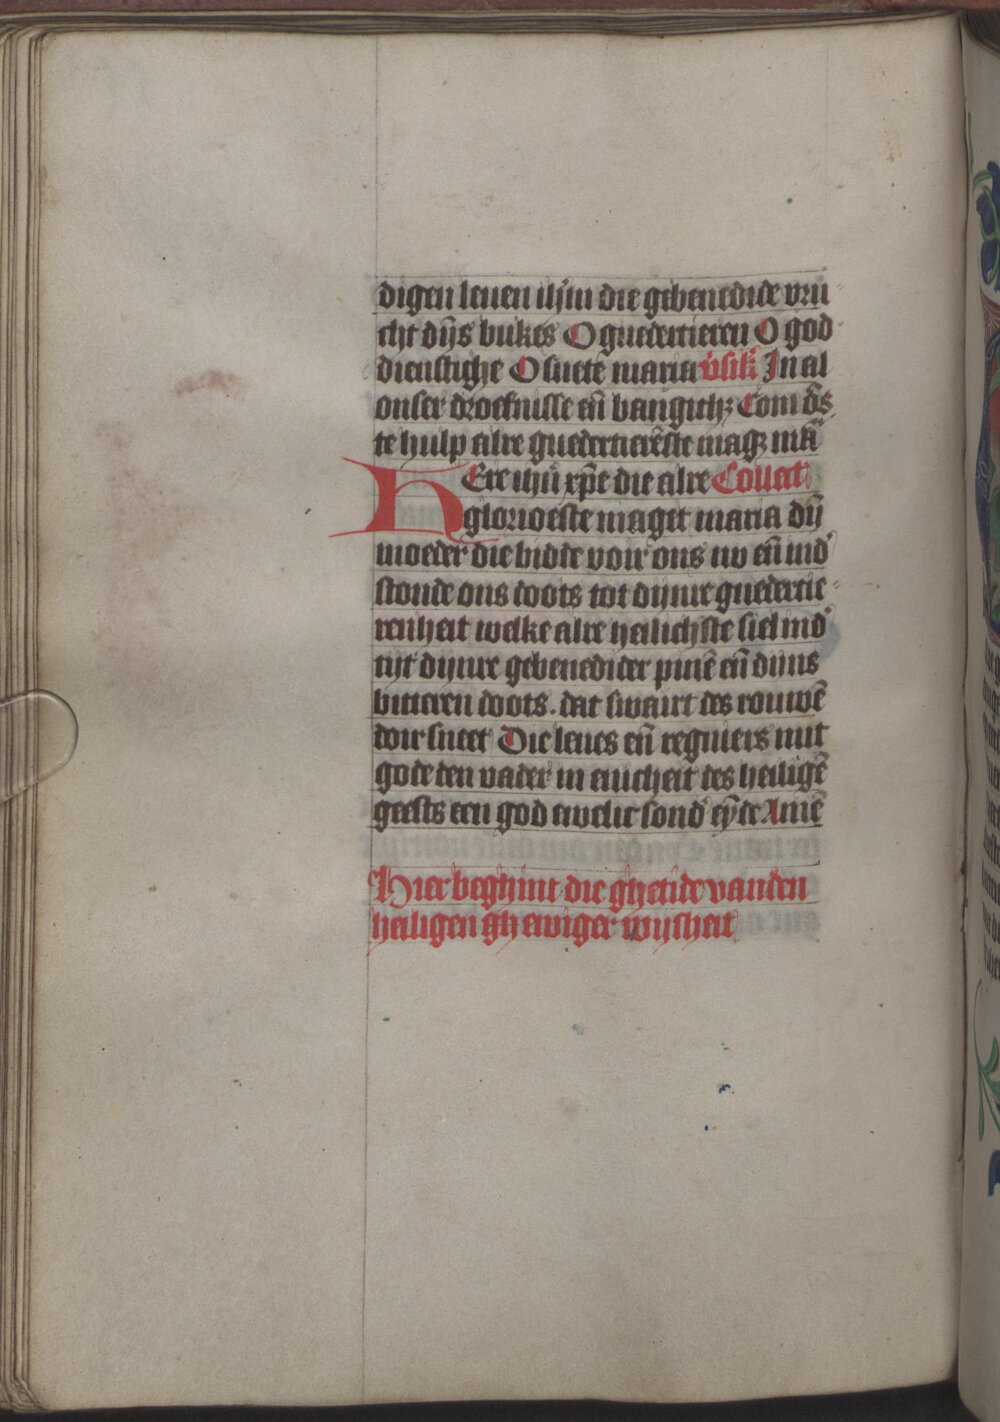 digen leuen ihm die gebenedide vru
cht dijs bukes O guedertieren O god
dienstighe O suete maria v̄sik̄ In al
onser droefnisse en̄ bangich₃ Com ōs
te hulp alre guedertierēste mag₃ mā
HEre ihū xp̄e die alre Collect
glorioeste maget maria dij̄
moeder die bidde voir ons nv en̄ ind'
stonde ons doots tot dijnre guedertie
renheit welke alre heilichste siel ind'
tijt dijnre gebenedider pinē en̄ dijns
bitteren doots. dat swairt des rouwē
doir sneet Die leues en̄ regniers mit
gode den vader in enicheit des heiligē
geests een god ewelic sond' eȳde Amē
Hier beghint die ghetide vanden
heiligen gh ewiger wijsheit